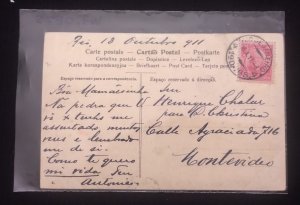 Rio, 12 Outubro 911
Carte postale — Cartão Postal — Postkarte
Cartolina postale — Dopisnice — Levelező-Lap
Karta korespondencyjna — Briefkaart — Post Card — Tarjeta postal
Espaço reservado para a correspondencia.
Espaço reservado á direcção.
Na pedra que ti
vi x tenho me
assentado, muitas
vezes e lembrado
me de si.
Como te quero
mi vida
Antonieta
Snr
Henrique Chalar
para
Calle Agraciada 716
Montevideo